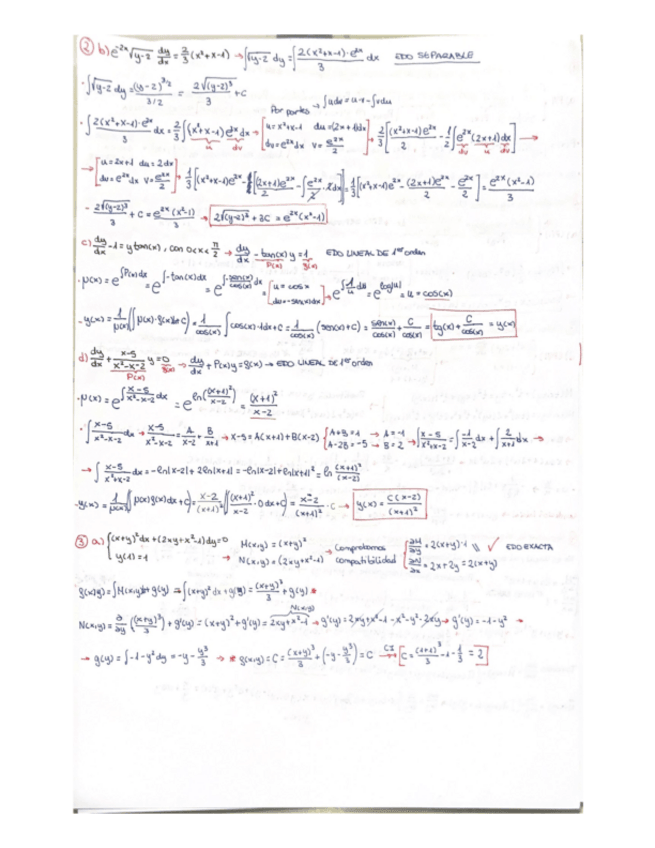 ② b) e^{-2x}√(y-2) dy/dx = 2/3 (x²+x-1) → ∫√(y-2) dy = ∫ 2(x²+x-1)·e^{2x}/3 dx EDO SEPARABLE
· ∫√(y-2) dy = (y-2)^{3/2}/(3/2) = 2√(y-2)³/3 + C
Por partes → ∫udv = u·v - ∫vdu
· ∫ 2(x²+x-1)·e^{2x}/3 dx = 2/3 ∫(x²+x-1) e^{2x} dx → [u = x²+x-1 du = (2x+1)dx dv = e^{2x}dx v = e^{2x}/2] → 2/3 [(x²+x-1)e^{2x}/2 - 1/2 ∫e^{2x}(2x+1)dx] →
→ [u = 2x+1 du = 2dx dv = e^{2x}dx v = e^{2x}/2] → 1/3 [(x²+x-1)e^{2x} - [(2x+1)e^{2x}/2 - ∫e^{2x}/2 · 2dx]] = 1/3 [(x²+x-1)e^{2x} - (2x+1)e^{2x}/2 - e^{2x}/2] = e^{2x}(x²-1)/3
- 2√(y-2)³/3 + C = e^{2x}(x²-1)/3 → 2√(y-2)³ + 3C = e^{2x}(x²-1)
c) dy/dx - 1 = y tan(x), con 0<x<π/2 → dy/dx - tan(x) y = 1 EDO LINEAL DE 1er orden
P(x) g(x)
· μ(x) = e^{∫P(x)dx} = e^{∫-tan(x)dx} = e^{∫-sen(x)/cos(x) dx} = [u = cosx du = -sen(x)dx] → e^{∫1/u du} = e^{log u} = u = cos(x)
- y(x) = 1/μ(x) (∫μ(x)·g(x)dx + C) = 1/cos(x) ∫cos(x)·1dx + C = 1/cos(x) (sen(x)+C) = sen(x)/cos(x) + C/cos(x) = tg(x) + C/cos(x) = y(x)
d) dy/dx + x-5/x²-x-2 y = 0 → dy/dx + P(x)y = g(x) → EDO LINEAL DE 1er orden
P(x) g(x)
· μ(x) = e^{∫ x-5/x²-x-2 dx} = e^{ln((x+1)²/x-2)} = (x+1)²/x-2
· ∫ x-5/x²-x-2 dx → x-5/x²-x-2 = A/x-2 + B/x+1 → x-5 = A(x+1)+B(x-2) {A+B=1 → A=-1 A-2B=-5 → B=2 → ∫ x-5/x²-x-2 = ∫ -1/x-2 dx + ∫ 2/x+1 dx →
→ ∫ x-5/x²-x-2 dx = -ln|x-2| + 2ln|x+1| = -ln|x-2| + ln|x+1|² = ln (x+1)²/(x-2)
- y(x) = 1/μ(x) (∫μ(x)g(x)dx + C) = x-2/(x+1)² (∫(x+1)²/x-2 · 0dx + C) = x-2/(x+1)² · C → y(x) = C(x-2)/(x+1)²
③ a) {(x+y)²dx + (2xy+x²-1)dy = 0 y(1) = 1 → M(x,y) = (x+y)² N(x,y) = (2xy+x²-1) → Comprobamos compatibilidad {∂M/∂y = 2(x+y)·1 ∂N/∂x = 2x+2y = 2(x+y) ✓ EDO EXACTA
g(x,y) = ∫M(x,y)dx + g(y) → ∫(x+y)²dx + g(y) = (x+y)³/3 + g(y) *
N(x,y) = ∂/∂y ((x+y)³/3) + g'(y) = (x+y)² + g'(y) = 2xy+x²-1 → g'(y) = 2xy+x²-1-x²-y²-2xy → g'(y) = -1-y² →
N(x,y)
→ g(y) = ∫-1-y²dy = -y - y³/3 → * g(x,y) = C = (x+y)³/3 · (-y - y³/3) = C → C = (1+1)³/3 - 1 - 1/3 = 2